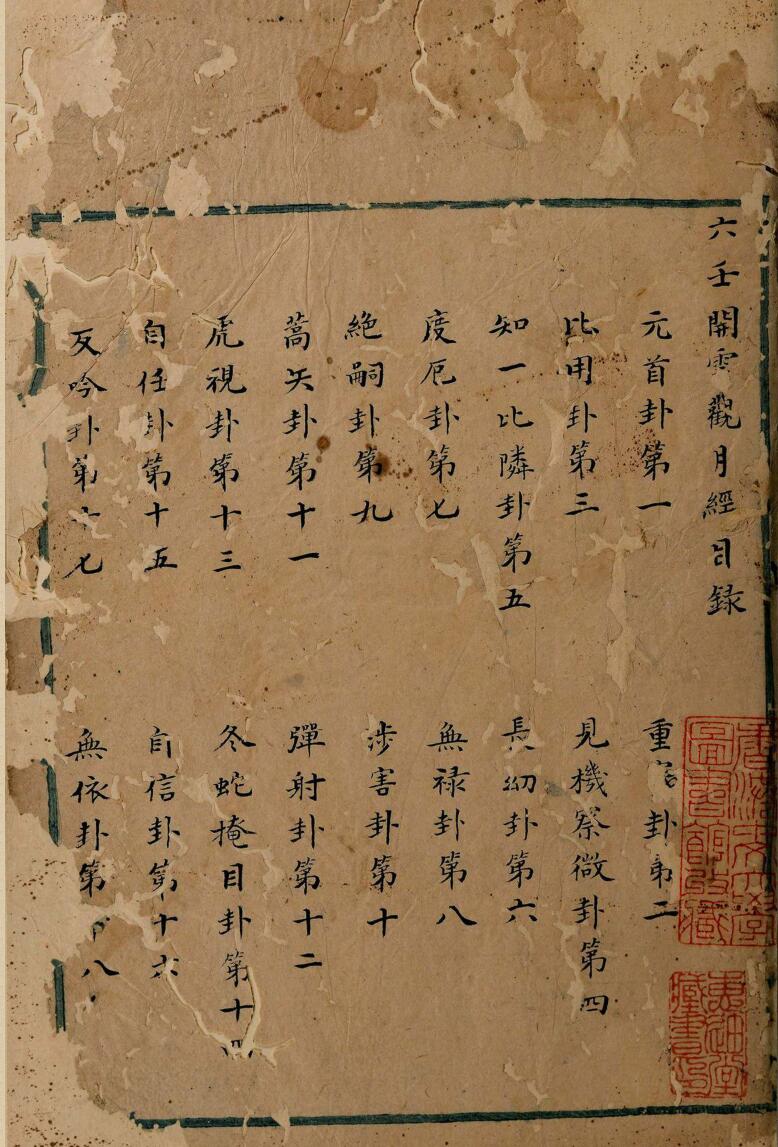 六壬開雲觀月經目錄
元首卦第一
重審卦第二
比用卦第三
見機察微卦第四
知一比隣卦第五
長幼卦第六
度厄卦第七
無禄卦第八
絶嗣卦第九
涉害卦第十
蒿矢卦第十一
彈射卦第十二
虎視卦第十三
冬蛇掩目卦第十四
自任卦第十五
自信卦第十六
反吟卦第十七
無依卦第十八
圖書館收藏
藏書印